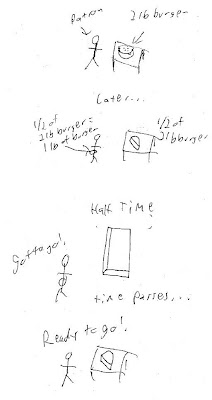 Patron
2lb burger
Later...
1/2 of
2lb burger =
1lb of burger
1/2 of
2lb burger
Half Time!
Gotta go!
time passes...
Ready to go!